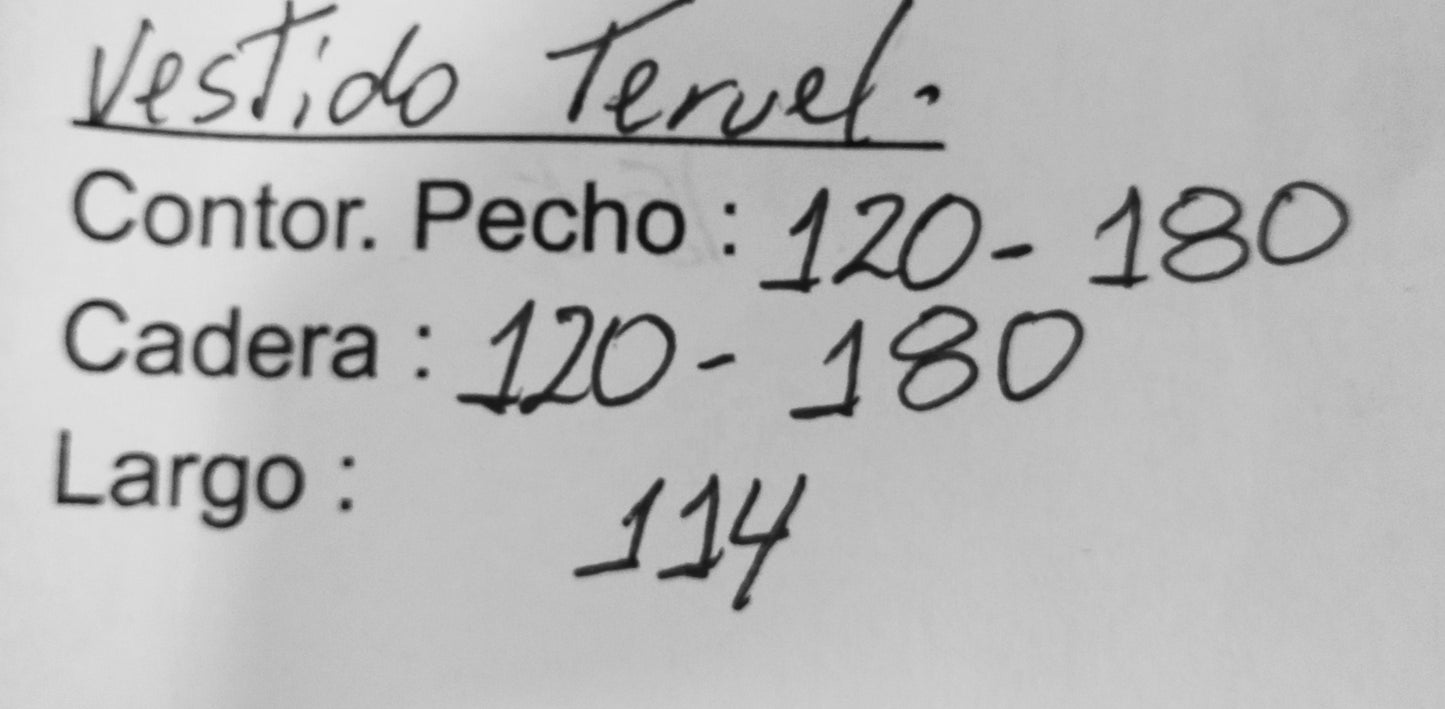 Vestido Teruel.
Contor. Pecho : 120 - 180
Cadera : 120 - 180
Largo : 114